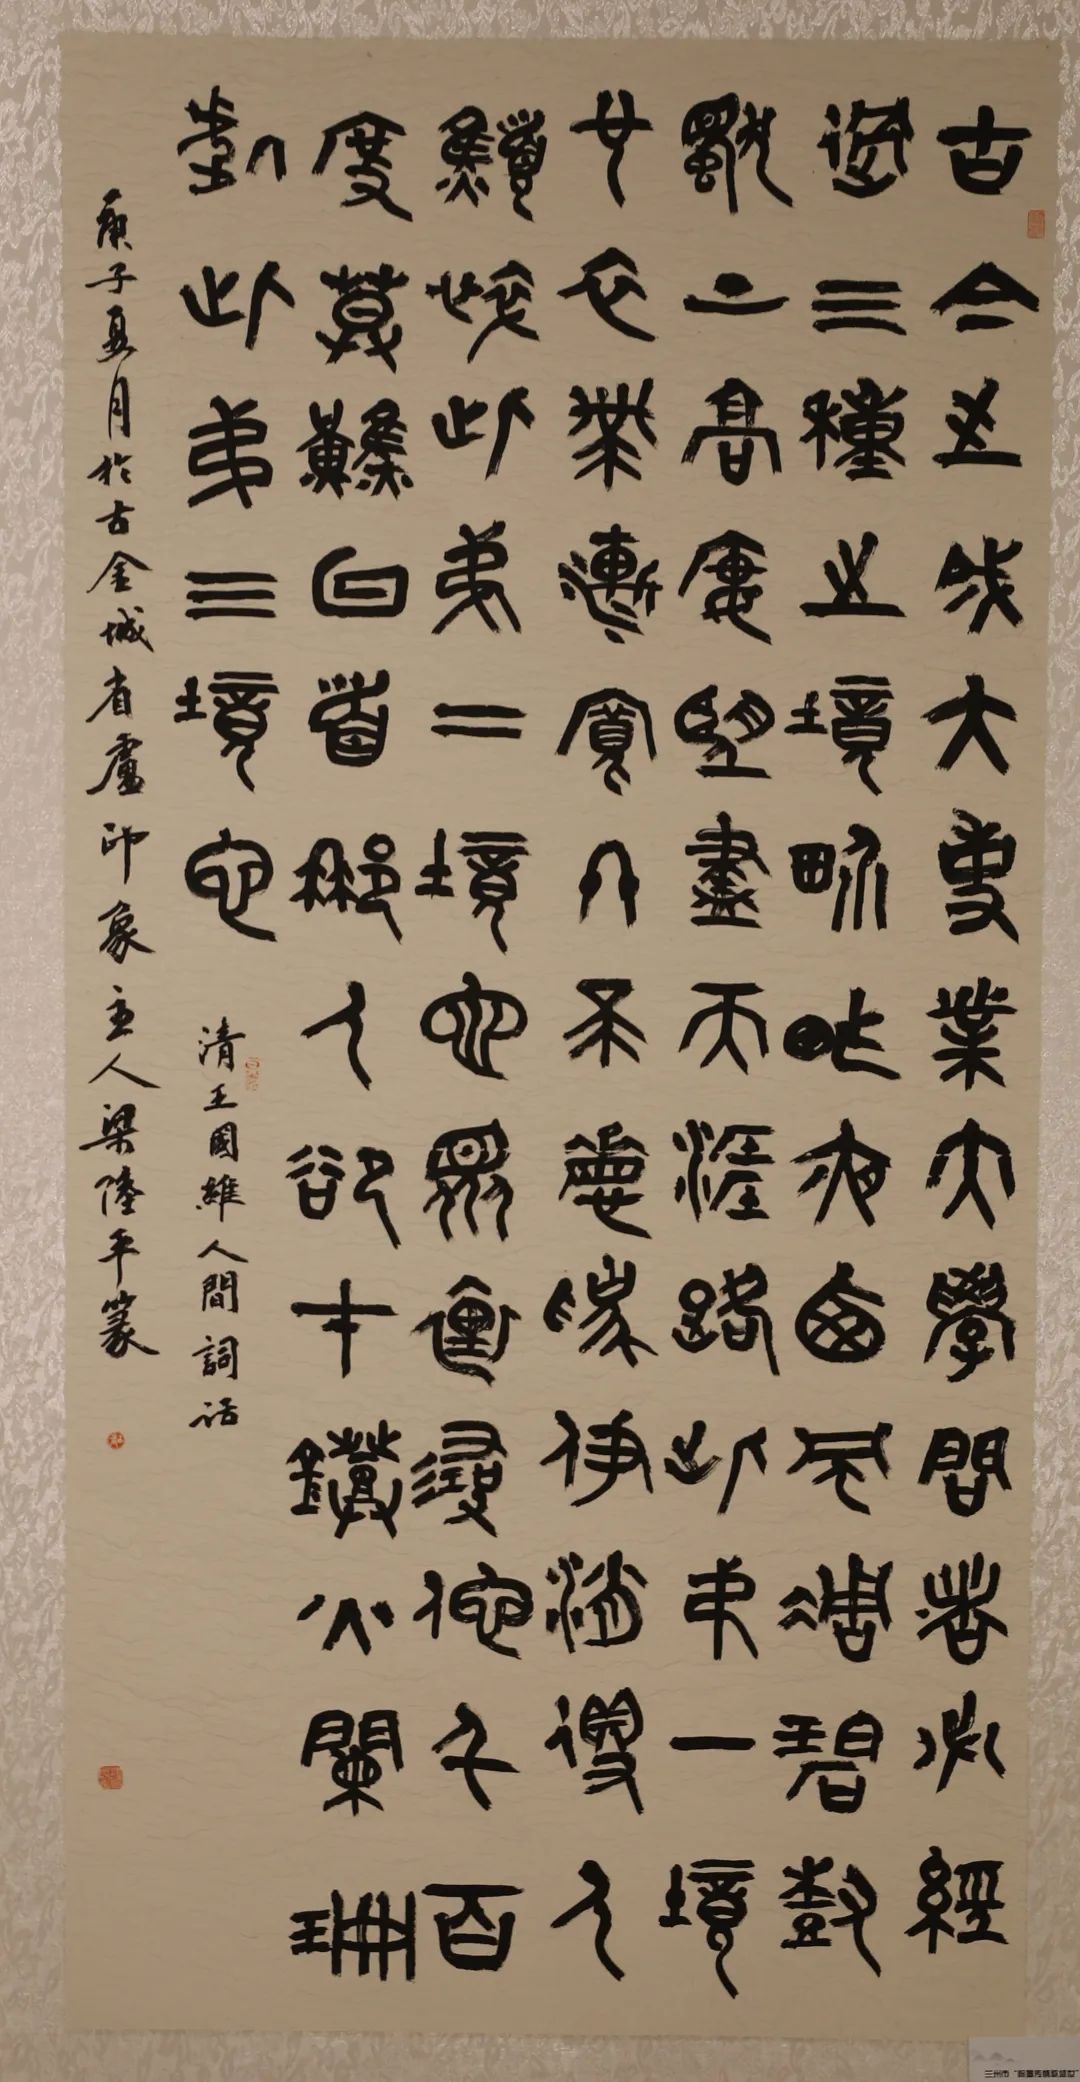 古今之成大事業大學問者必經
過三種之境界昨夜西風凋碧樹
獨上高樓望盡天涯路此第一境
也衣帶漸寬終不悔為伊消得人
顦悴此第二境也眾裏尋他千百
度驀然回首那人卻在鐙火闌珊
處此第三境也
清王國維人間詞話
庚子夏月於古金城省廬印象主人梁陸平篆